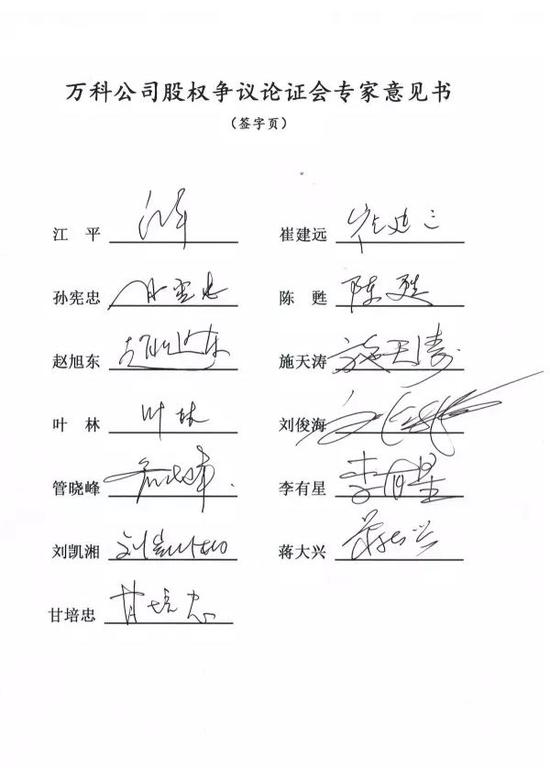 万科公司股权争议论证会专家意见书
（签字页）
江 平 江平 崔建远 崔建远
孙宪忠 孙宪忠 陈 甦 陈甦
赵旭东 赵旭东 施天涛 施天涛
叶 林 叶林 刘俊海 刘俊海
管晓峰 管晓峰 李有星 李有星
刘凯湘 刘凯湘 蒋大兴 蒋大兴
甘培忠 甘培忠